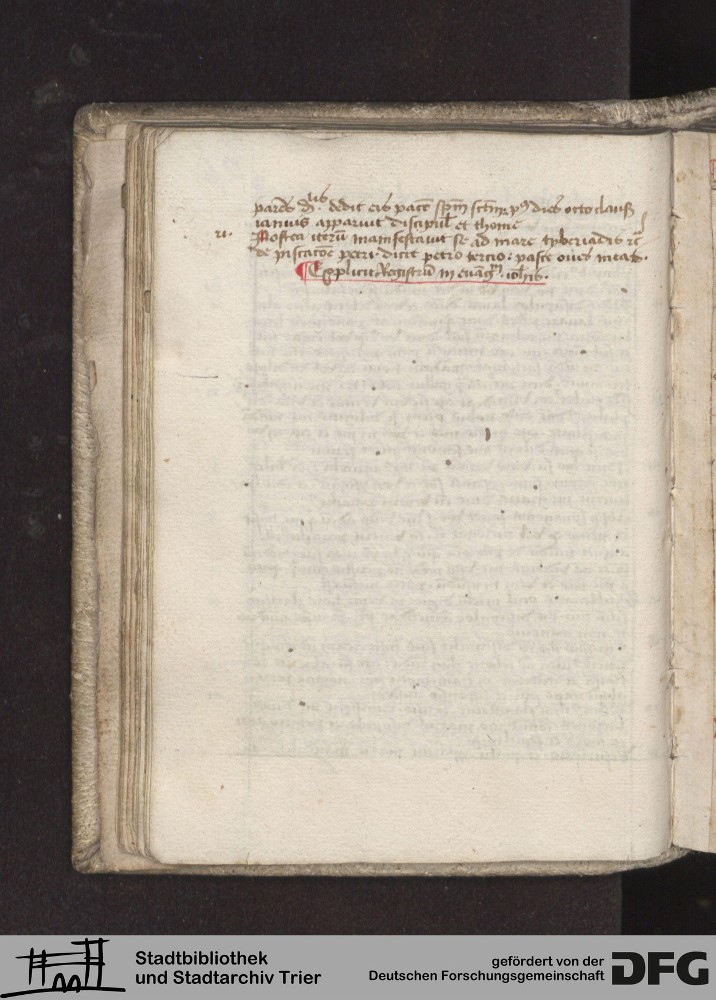 lis
pares d. dedit eis pacē spm̄ sctm̄ et pꝰ dies octo clausis
ianuis apparuit discipul et thome
21. Postea iterū manifestauit se ad mare tyberiadis
de piscatōe petri. dicit petro tercio: pasce oues meas.
Explicit Registrū in euāg. iohis.
Stadtbibliothek
und Stadtarchiv Trier
gefördert von der
Deutschen Forschungsgemeinschaft
DFG